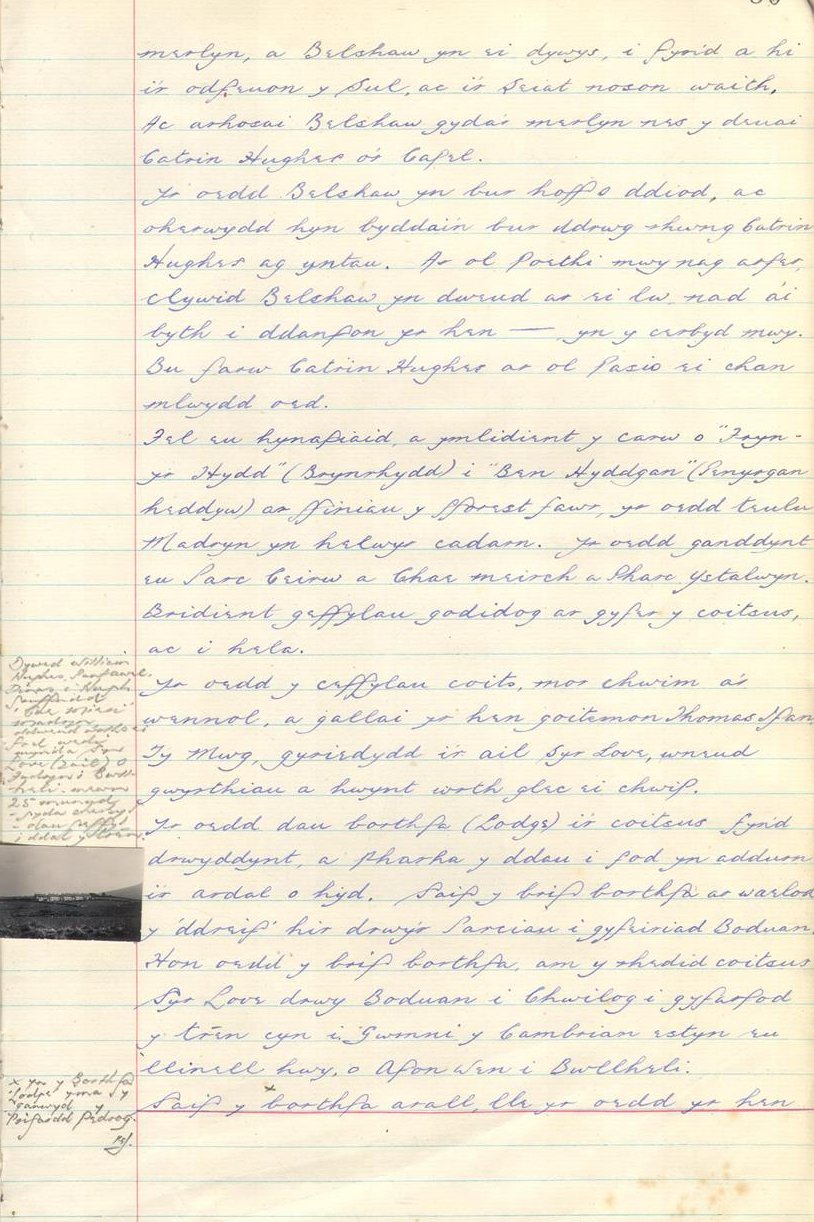 merlyn, a Belshaw yn ei dywys, i fynd a hi
i'r odfeuon y Sul, ac i'r Seiat noson waith.
Ac arhosai Belshaw gyda'r merlyn nes y deuai
Catrin Hughes o'r Capel.
Yr oedd Belshaw yn bur hoff o ddiod, ac
oherwydd hyn byddai'n bur ddrwg rhwng Catrin
Hughes ag yntau. Ar ol Poethi mwy nag arfer,
clywid Belshaw yn dweud ar ei lw nad ai
byth i ddanfon yr hen — yn y cerbyd mwy.
Bu farw Catrin Hughes ar ol Pasio ei chan
mlwydd oed.
Fel eu hynafiaid, a ymlidient y carw o "Fryn-
yr Hydd" (Brynrhydd) i "Ben Hyddgan" (Penyrgan
heddyw) ar ffiniau y fforest fawr, yr oedd teulu
Madryn yn helwyr cadarn. Yr oedd ganddynt
eu Parc Ceirw a Chae meirch a Pharc Ystalwyn.
Bridient geffylau godidog ar gyfer y coitsus,
ac i hela.
Yr oedd y ceffylau coits, mor chwim a'r
wennol, a gallai yr hen goitsmon Thomas Ifan
Ty Mwg, gyriedydd i'r ail Syr Love, wneud
gwyrthiau a hwynt wrth glec ei chwip.
Yr oedd dau borthfa (Lodge) i'r coitsus fynd
drwyddynt, a Pharha y ddau i fod yn addurn
i'r ardal o hyd. Saif y brif borthfa ar waelod
y 'ddreif' hir drwy'r Parciau i gyfeiriad Boduan.
Hon oedd y brif borthfa, am y rhedid coitsus
Syr Love drwy Boduan i Chwilog i gyfarfod
y trên cyn i Gwmni y Cambrian estyn eu
llinell hwy, o Afon Wen i Bwllheli.
Saif y x borthfa arall, lle yr oedd yr hen
Dywed William
Hughes
Love (2ail) o
25 munud
i ddal y trên.
x yn y Borthfa
lodge yma y
ganwyd y
Prifardd Pedrog.